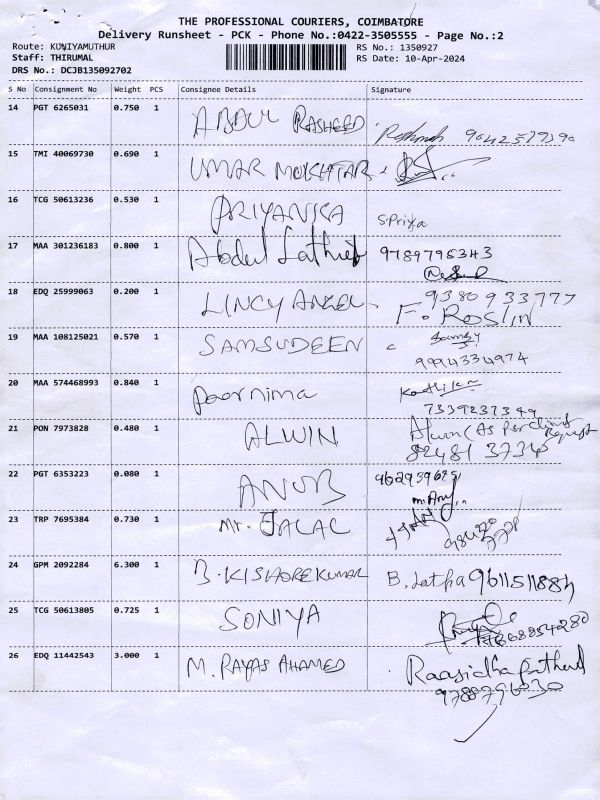 THE PROFESSIONAL COURIERS, COIMBATORE
Delivery Runsheet - PCK - Phone No.:0422-3505555 - Page No.:2
Route: KUNIYAMUTHUR
Staff: THIRUMAL
DRS No.: DCJB135092702
RS No.: 1350927
RS Date: 10-Apr-2024
S No Consignment No Weight PCS Consignee Details Signature
14 PGT 6265031 0.750 1 ABDUL RASHEED
15 TMI 40069730 0.690 1 UMAR MUKHTAR
16 TCG 50613236 0.530 1 PRIYANKA S.Priya
17 MAA 301236183 0.800 1 Abdul Lathief 9789795343
18 EDQ 25999063 0.200 1 LINCY ANGEL 9380933777
F. ROSLIN
19 MAA 108125021 0.570 1 SAMSUDEEN
9994334974
20 MAA 574468993 0.840 1 Poornima
7339237349
21 PON 7973828 0.480 1 ALWIN Alwin (As per client Request
82481 3734
22 PGT 6353223 0.080 1 ANUB
23 TRP 7695384 0.730 1 Mr. JALAL
24 GPM 2092284 6.300 1 B. KISHORE KUMAR B. Latha 9611511884
25 TCG 50613805 0.725 1 SONIYA
26 EDQ 11442543 3.000 1 M. RAYAS AHAMED Raasidha